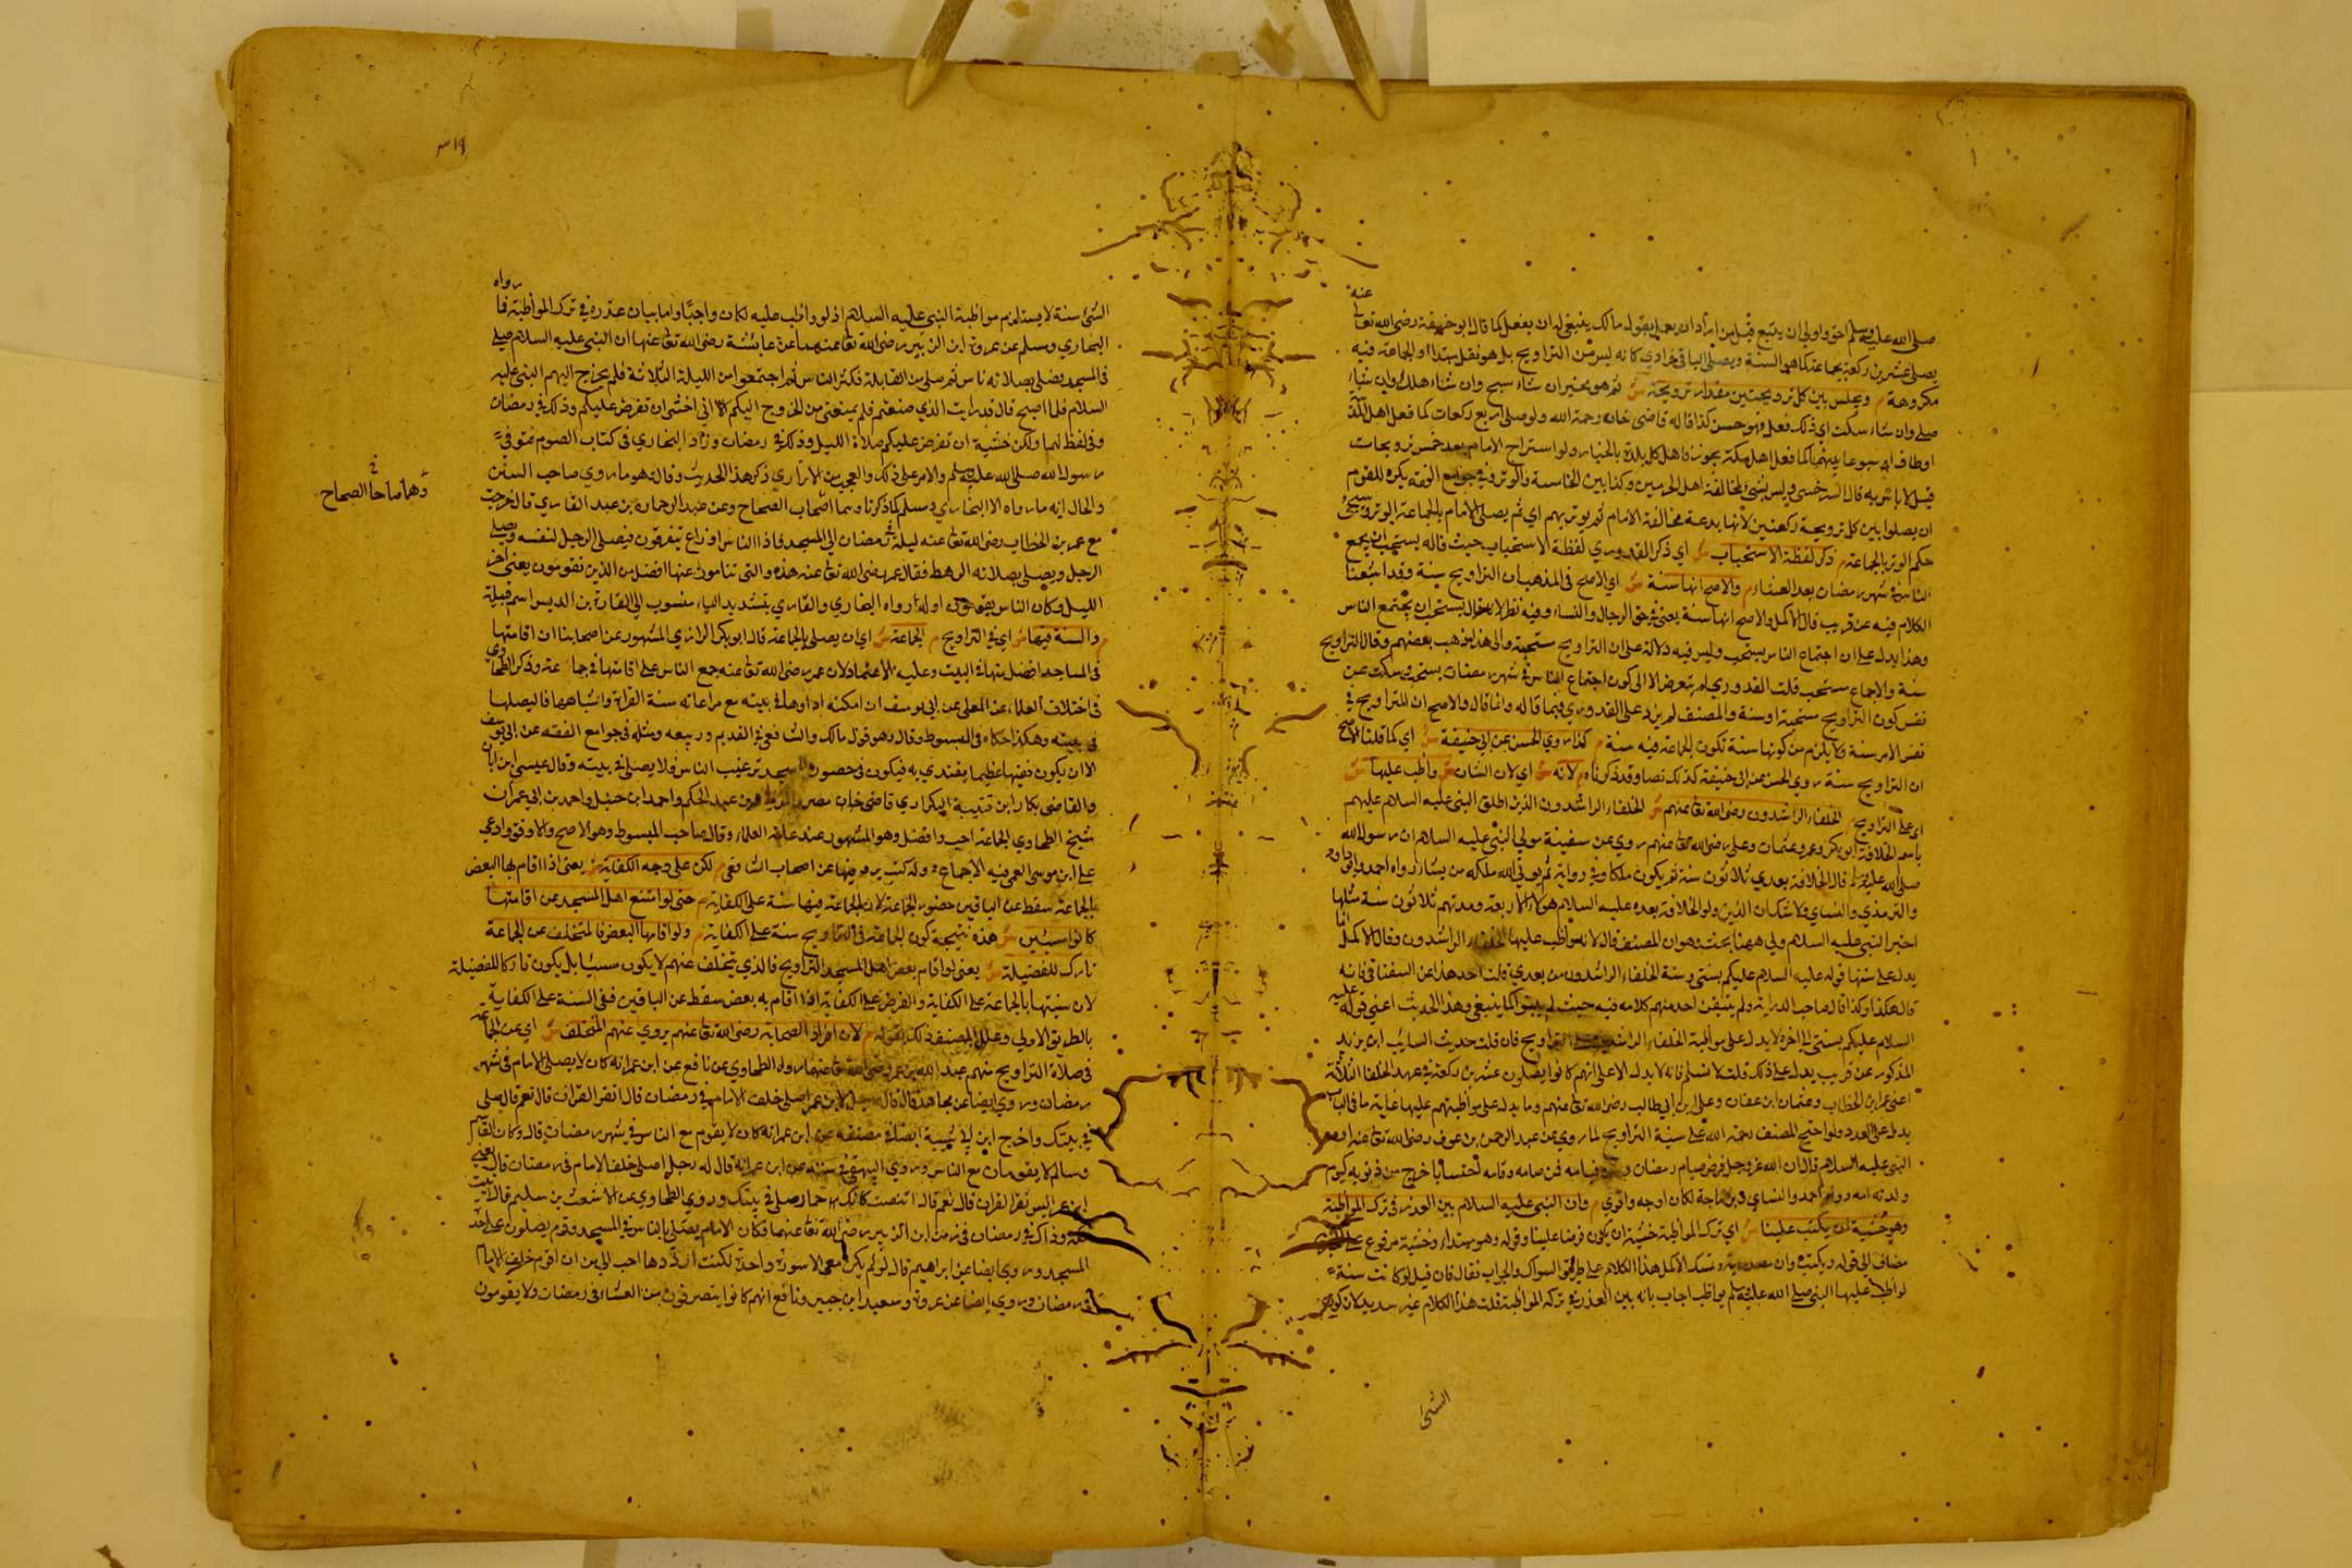 عنه
صلى الله عليه وسلم احق واولى ان يتبع قيل من اراد ان يعمل بقول مالك ينبغي له ان يفعل كما قال ابو حنيفة رضى الله تعا
يصلى عشرين ركعة بجماعة كما هو السنة ويصلى الباقي فرادي كانه ليس من التراويح بل هو نفل مبتدا والجماعة فيه
مكروهة م ويجلس بين كل ترويحتين مقدار ترويحة ش ثم هو مخير ان شاء سبح وان شاء هلل وان شاء
صلى وان شاء سكت اي ذلك فعل فهو حسن كذا قاله قاضى خان رحمة الله ولو صلى اربع ركعات كما فعل اهل المدينة
او طاف اسبوعا بينهما كما فعل اهل مكة يجوز فاهل كل بلدة بالخيار ولو استراح الامام بعد خمس ترويحات
قيل لا باس به قال السرخسى وليس بشئ لمخالفة اهل الحرمين وكذا بين الخامسة والوتر وفي جوامع الفقه يكره للقوم
ان يصلوا بين كل ترويحة ركعتين لانها بدعة مخالفة الامام ثم يوتر بهم اي ثم يصلى الامام بالجماعة الوتر وسيجئ
حكم الوتر بالجماعة م ذكر لفظة الاستحباب ش اي ذكر القدوري لفظة الاستحباب حيث قاله يستحب ان يجمع
الناس في شهر رمضان بعد العشاء م والاصح انها سنة ش اي الاصح فى المذهب ان التراويح سنة وقد اشبعنا
الكلام فيه عن قريب قال الاكمل والاصح انها سنة يعنى في حق الرجال والنساء وفيه نظر لانه قال يستحب ان يجتمع الناس
وهذا يدل على ان اجتماع الناس يستحب وليس فيه دلالة على ان التراويح مستحبة والى هذا ذهب بعضهم وقال التراويح
سنة والاجماع مستحب قلت القدوري لم يتعرض الا الى كون اجتماع الناس في شهر رمضان يستحب وسكت عن
نفس كون التراويح مستحبة او سنة والمصنف لم يزد على القدوري فيما قاله وانما قال والاصح ان التراويح في
نفس الامر سنة ولا يلزم من كونها سنة تكون الجماعة فيه سنة م كذا روي الحسن عن ابي حنيفة ش اي كما قلنا الاصح
ان التراويح سنة روي الحسن عن ابي حنيفة كذلك نصا وقد ذكرناه م لانه ش اي لان الشان م واظب عليها ش
اى على التراويح م الخلفاء الراشدون رضى الله تعا عنهم ش الخلفاء الراشدون الذين اطلق النبى عليه السلام عليهم
باسم الخلافة ابو بكر وعمر وعثمان وعلى رضى الله تعا عنهم روي عن سفينة مولى النبى عليه السلام ان رسول الله
صلى الله عليه وسلم قال الخلافة بعدي ثلاثون سنة ثم يكون ملكا وفي رواية ثم يوتي الله ملكه من يشاء رواه احمد وابو داود
والترمذي والنسائي ولا شك ان الذين ولوا الخلافة بعده عليه السلام هولاء الاربعة ومدتهم ثلاثون سنة مثلها
اخبر النبى عليه السلام ولى ههنا بحث وهو ان المصنف قال لانه واظب عليها الخلفاء الراشدون وقال الاكمل انما
يدل على سنتها قوله عليه السلام عليكم بسنتي وسنة الخلفاء الراشدون من بعدي قلت احد هذا عن السغناقى فانه
قال هكذا وكذا قال صاحب الدراية ولم يتيقن احد منهم كلامه فيه حيث لم يبينوا كما ينبغي وهذا الحديث اعني قوله عليه
السلام عليكم بسنتى الى اخره لا يدل على مواظبة الخلفاء الراشدين على التراويح فان قلت حديث السايب ابن يزيد
المذكور عن قريب يدل على ذلك قلت لا نسلم فانه لا يدل الا على انهم كانوا يصلون عشرين ركعة في عهد الخلفا الثلاثة
اعنى عمر ابن الخطاب وعثمان ابن عفان وعلى ابن ابي طالب رضى الله تعا عنهم وما يدل على مواظبتهم عليها غاية ما في الباب
يدل على العدد ولو احتج المصنف رحمة الله على سنية التراويح لما روي عن عبد الرحمن بن عوف رضى الله تعا عنه
النبى عليه السلام قال ان الله عز وجل فرض صيام رمضان وسن قيامه فمن صامه وقامه احتسابا خرج من ذنوبه كيوم
ولدته امه رواه احمد والنسائي وابن ماجة لكان اوجه واقوي م وان النبى عليه السلام بين العذر فى ترك المواظبة
وهو خشية ان يكتب علينا ش اي ترك المواظبة خشية ان يكون فرضا علينا وقوله وهو مبتداء وخشية مرفوع
مضاف الى قوله ويكتب وان مصدرية وتمسك الاكمل هذا الكلام على طريق السوال والجواب فقال فان قيل لو كانت سنة
لواظب عليها النبى صلى الله عليه وسلم يواظب اجاب بانه بين العذر في تركه المواظبة قلت هذا الكلام غير سديد لان كون
الشئ
رواه
الشئ سنة لا يستلزم مواظبة النبى عليه السلام اذ لو واظب عليه لكان واجبا واما بيان عذره في ترك المواظبة فما
البخاري ومسلم عن عروة ابن الزبير رضى الله تعا عنهما عن عائشة رضى الله تعا عنها ان النبى عليه السلام صلى
فى المسجد فصلى بصلاته ناس ثم صلى من القابلة فكثر الناس ثم اجتمعوا من الليلة الثلاثة فلم يخرج اليهم النبى عليه
السلام فلما اصبح قال قد رايت الذي صنعتم فلم يمنعنى من الخروج اليكم الا اني اخشى ان تفرض عليكم وذلك في رمضان
وفى لفظ لهما ولكن خشية ان تفرض عليكم صلاة الليل وذلك في رمضان وزاد البخاري فى كتاب الصوم فتوفي
رسول الله صلى الله عليه وسلم والامر على ذلك والعجب من الاتراري ذكر هذا الحديث وقال هو ما روي صاحب السنن
والحال انه ما رواه الا البخاري ومسلم كما ذكرنا وهما اصحاب الصحاح وعن عبد الرحمان بن عبد القاري قال خرجت
مع عمر بن الخطاب رضى الله تعا عنه ليلة في رمضان الى المسجد فاذا الناس اوزاع يتفرقون فيصلى الرجل لنفسه ويصلى
الرجل ويصلى بصلاته الرهط فقال عمر رضى الله تعا عنه هذه والتى تنامون عنها افضل من الذين تقومون يعنى اخر
الليل وكان الناس يقومون اوله رواه البخاري والقاري بتشديد الياء منسوب الى القارة بن الديس اسم قبيلة
م والسنة فيها ش اي في التراويح م الجماعة ش اي ان يصلى بالجماعة قال ابو بكر الرازي المشهور عن اصحابنا ان اقامتها
فى المساجد افضل منها في البيت وعليه الاعتماد لان عمر رضى الله تعا عنه جمع الناس على اقامتها في جماعة وذكر الطحاوي
فى اختلاف العلماء عن المعلى عن ابي يوسف ان امكنه اداوها في بيته مع مراعاته سنة القراة واشباهها فاليصلها
في بيته وهكذا حكاه فى المبسوط وقال وهو قول مالك والشافعي في القديم وربيعه ومثله في جوامع الفقه عن ابي يوسف
الا ان يكون فقيها عظيما يقتدي به فيكون في حضوره المسجد ترغيب الناس ولا يصلى في بيته وقال عيسى ابن ابان
والقاضى بكار ابن قتيبة البكراوي قاضى خان مصر والمزنى بن عبد الحكم واحمد ابن حنبل واحمد بن ابي عمران
شيخ الطحاوي الجماعة احب وافضل وهو المشهور عند عامة العلماء وقال صاحب المبسوط وهو الاصح والاوفق وادعى
على ابن موسى القمى فيه الاجماع م لكن على وجه الكفاية ش يعنى اذا اقام بها البعض
بالجماعة سقط عن الباقين حضور الجماعة لان الجماعة فيها سنة على الكفاية م حتى لو امتنع اهل المسجد عن اقامتها
كانوا مسيئين ش هذه نتيجة كون الجماعة فى التراويح سنة على الكفاية م ولو اقامها البعض فالمتخلف عن الجماعة
تارك للفضيلة ش يعنى لو اقام بعض اهل المسجد التراويح فالذي تخلف عنهم لا يكون مسيئا بل يكون تاركا للفضيلة
لان سنتها بالجماعة على الكفاية والفرض على الكفاية اذا اقام به بعض سقط عن الباقين ففى السنة على الكفاية
بالطريق الاولى وعلل المصنف ذلك بقوله م لان افراد الصحابة رضى الله تعا عنهم يروي عنهم التخلف ش اي عن الجماعة
فى صلاة التراويح منهم عبد الله بن عمر رضى الله تعا عنهما رواه الطحاوي عن نافع عن ابن عمر انه كان لا يصلى الامام في شهر
رمضان وروي ايضا عن مجاهد قال قال رجل لابن عمر اصلى خلف الامام في رمضان قال اتقرا القران قال نعم قال صلى
في بيتك واخرج ابن ابي شيبة ايضا في مصنفه عن ابن عمر انه كان لا يقوم مع الناس في شهر رمضان قال وكان القاسم
وسالم لا يقومان مع الناس وروي البيهقى في سننه عن ابن عمر انه قال له رجل اصلى خلف الامام في رمضان قال
ابن عمر اليس تقرا القران قال نعم قال اتنصت كانك حمار صل في بيتك وروي الطحاوي عن الاشعث بن سليم قال اتيت
مكة وذاك في رمضان فى زمن ابن الزبير رضى الله تعا عنهما فكان الامام يصلى بالناس في المسجد وقوم يصلون على حدة
المسجد وروي ايضا عن ابراهيم قال لو لم يكن معى الا سورة واحدة لكنت ارددها احب الى من ان اقوم خلف الامام
فى رمضان وروي ايضا عن عروة وسعيد ابن جبير ونافع انهم كانوا ينصرفون من العشاء فى رمضان ولا يقومون
وهما صاحبا الصحاح